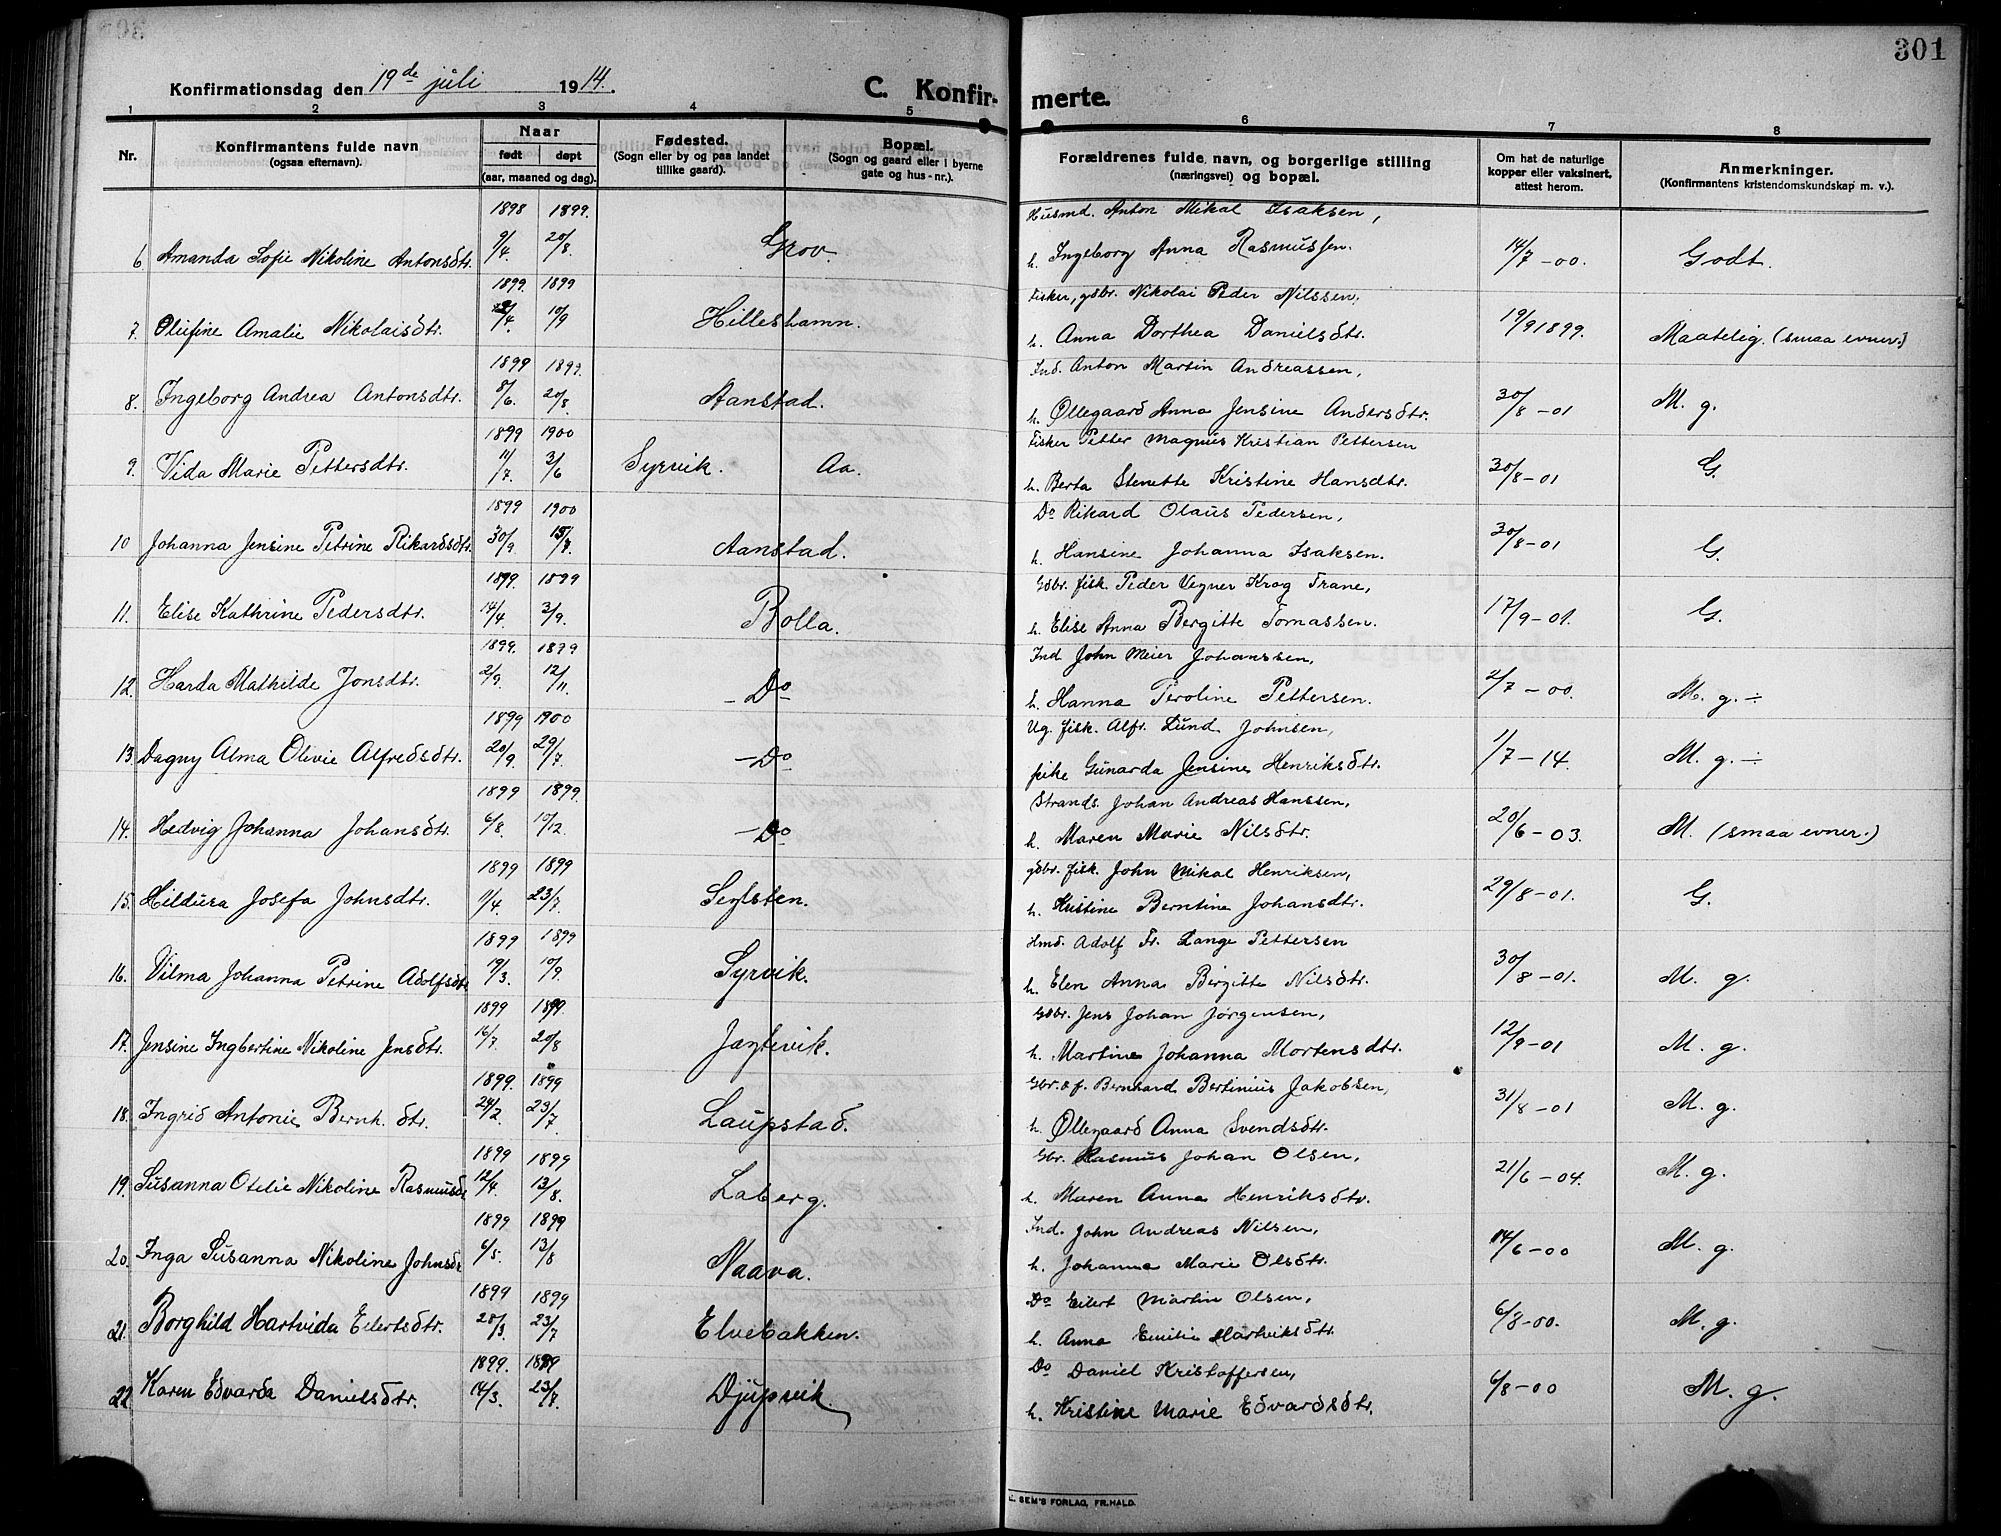 301
Konfirmationsdag den 19de juli 1914.
C. Konfirmerte.
1 2 3 4 5 6 7 8
Nr.
Konfirmantens fulde navn
(ogsaa efternavn).
Naar
født døpt
(aar, maaned og dag).
Fødested.
(Sogn eller by og paa landet
tillike gaard).
Bopæl.
(Sogn og gaard eller i byerne
gate og hus-nr.).
Forældrenes fulde navn, og borgerlige stilling
(næringsvei) og bopæl.
Om hat de naturlige
kopper eller vaksinert,
attest herom.
Anmerkninger.
(Konfirmantens kristendomskundskap m. v.).
1898 1899. Husmd. Anton Mikal Isaksen,
6 Amanda Sofie Nikoline Antonsdtr. 9/4. 20/8 Grov. h. Ingeborg Anna Rasmussen. 14/7-00. Godt.
1899. 1899 Fisker, gdbr. Nikolai Peder Nilssen,
7. Olufine Amalie Nikolaisdtr. /4. 10/9 Hilleshamn. h. Anna Dorthea Danielsdtr. 19/9 1899. Maatelig. (smaa evner.)
1899 1899. Ind. Anton Martin Andreassen,
8. Ingeborg Andrea Antonsdtr. 8/6. 20/8 Aanstad. h. Øllegaard Anna Jensine Andersdtr. 30/8-01 M. g.
1899 1900 Fisker Petter Magnus Kristian Pettersen
9. Vida Marie Pettersdtr. 11/7. 3/6 Syrvik. Aa. h. Berta Stenette Kristine Hansdtr. 30/8-01 G.
1899 1900 Do Rikard Olaus Pedersen,
10 Johanna Jensine Petrine Rikardsdtr. 30/9. 15/7. Aanstad. h. Hansine Johanna Isaksen. 30/8-01 G.
1899. 1899 Gdbr. fisk. Peder Vegner Krog Trane,
11. Elise Kathrine Pedersdtr. 14/4. 3/9. Bolla. h. Elise Anna Bergitte Tomassen. 17/9-01. G.
1899. 1899 Ind John Meier Johanssen,
12. Harda Mathilde Jonsdtr. 2/9. 12/11. -Do h. Hanna Peroline Pettersen. 2/7-00. M. g. ÷
1899 1900 Ug. fisk. Alfr. Lund Johnsen,
13. Dagny Alma Olivie Alfredsdtr. 20/9. 29/7. -Do pike Gunarda Jensine Henriksdtr. 1/7-14. M. g. ÷
1899 1899. Strands. Johan Andreas Hanssen,
14. Hedvig Johanna Johansdtr. 6/8. 10/12. -Do h. Maren Marie Nilsdtr. 20/6-03. M. (smaa evner.)
1899 1899 gdbr. fisk. John Mikal Henriksen,
15. Hildura Josefa Johnsdtr. 11/4. 23/7. h. Kristine Berntine Johansdtr. 29/8-01. G.
1899 1899 Hmd. Adolf Fr. Lange Pettersen
16. Vilma Johanna Petrine Adolfsdtr 19/3. 10/9. Syrvik. h. Elen Anna Birgitte Nilsdtr. 30/8-01. M. g.
1899 1899. Gdbr. Jens Johan Jørgensen,
17. Jensine Ingbertine Nikoline Jensdtr. 16/7. 20/8 h. Martine Johanna Mortensdtr. 12/9-01 M. g.
1899. 1899 Gbr. & f. Bernhard Bertinius Jakobsen,
18. Ingrid Antonie Bernh. dtr. 24/2. 23/7. Laupstad. h. Øllegaard Anna Svendsdtr. 31/8-01 M. g.
1899 1899 Gbr. Rasmus Johan Olsen,
19. Susanna Otelie Nikoline Rasmusdr 12/4. 13/8. Laberg. h. Maren Anna Henriksdtr. 21/6-04. M. g.
1899 1899 Ind. John Andreas Nilsen,
20. Inga Susanna Nikoline Johnsdr 6/5. 13/8 Naava. h. Johanna Marie Olsdtr. 14/6-00 M. g.
1899 1899 Do Eilert Martin Olsen,
21. Borghild Hartvida Eilertsdtr. 28/3. 23/7 Elvebakken. h. Anna Emilie Hartviksdtr. 6/8-00. M. g.
1899. 1899 Do Daniel Kristoffersen,
22 Karen Edvarda Danielsdtr. 14/3. 23/7. Djupvik. h. Kristine Marie Edvardsdtr. 6/8-00 M. g.
SEM'S FORLAG, FR.HALD.